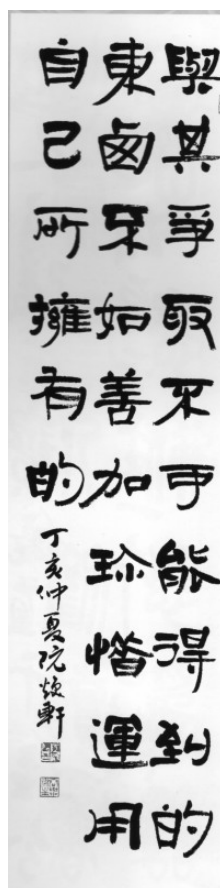 與其爭取不可能得到的
東西不如善加珍惜運用
自己所擁有的
丁亥仲夏阮軒